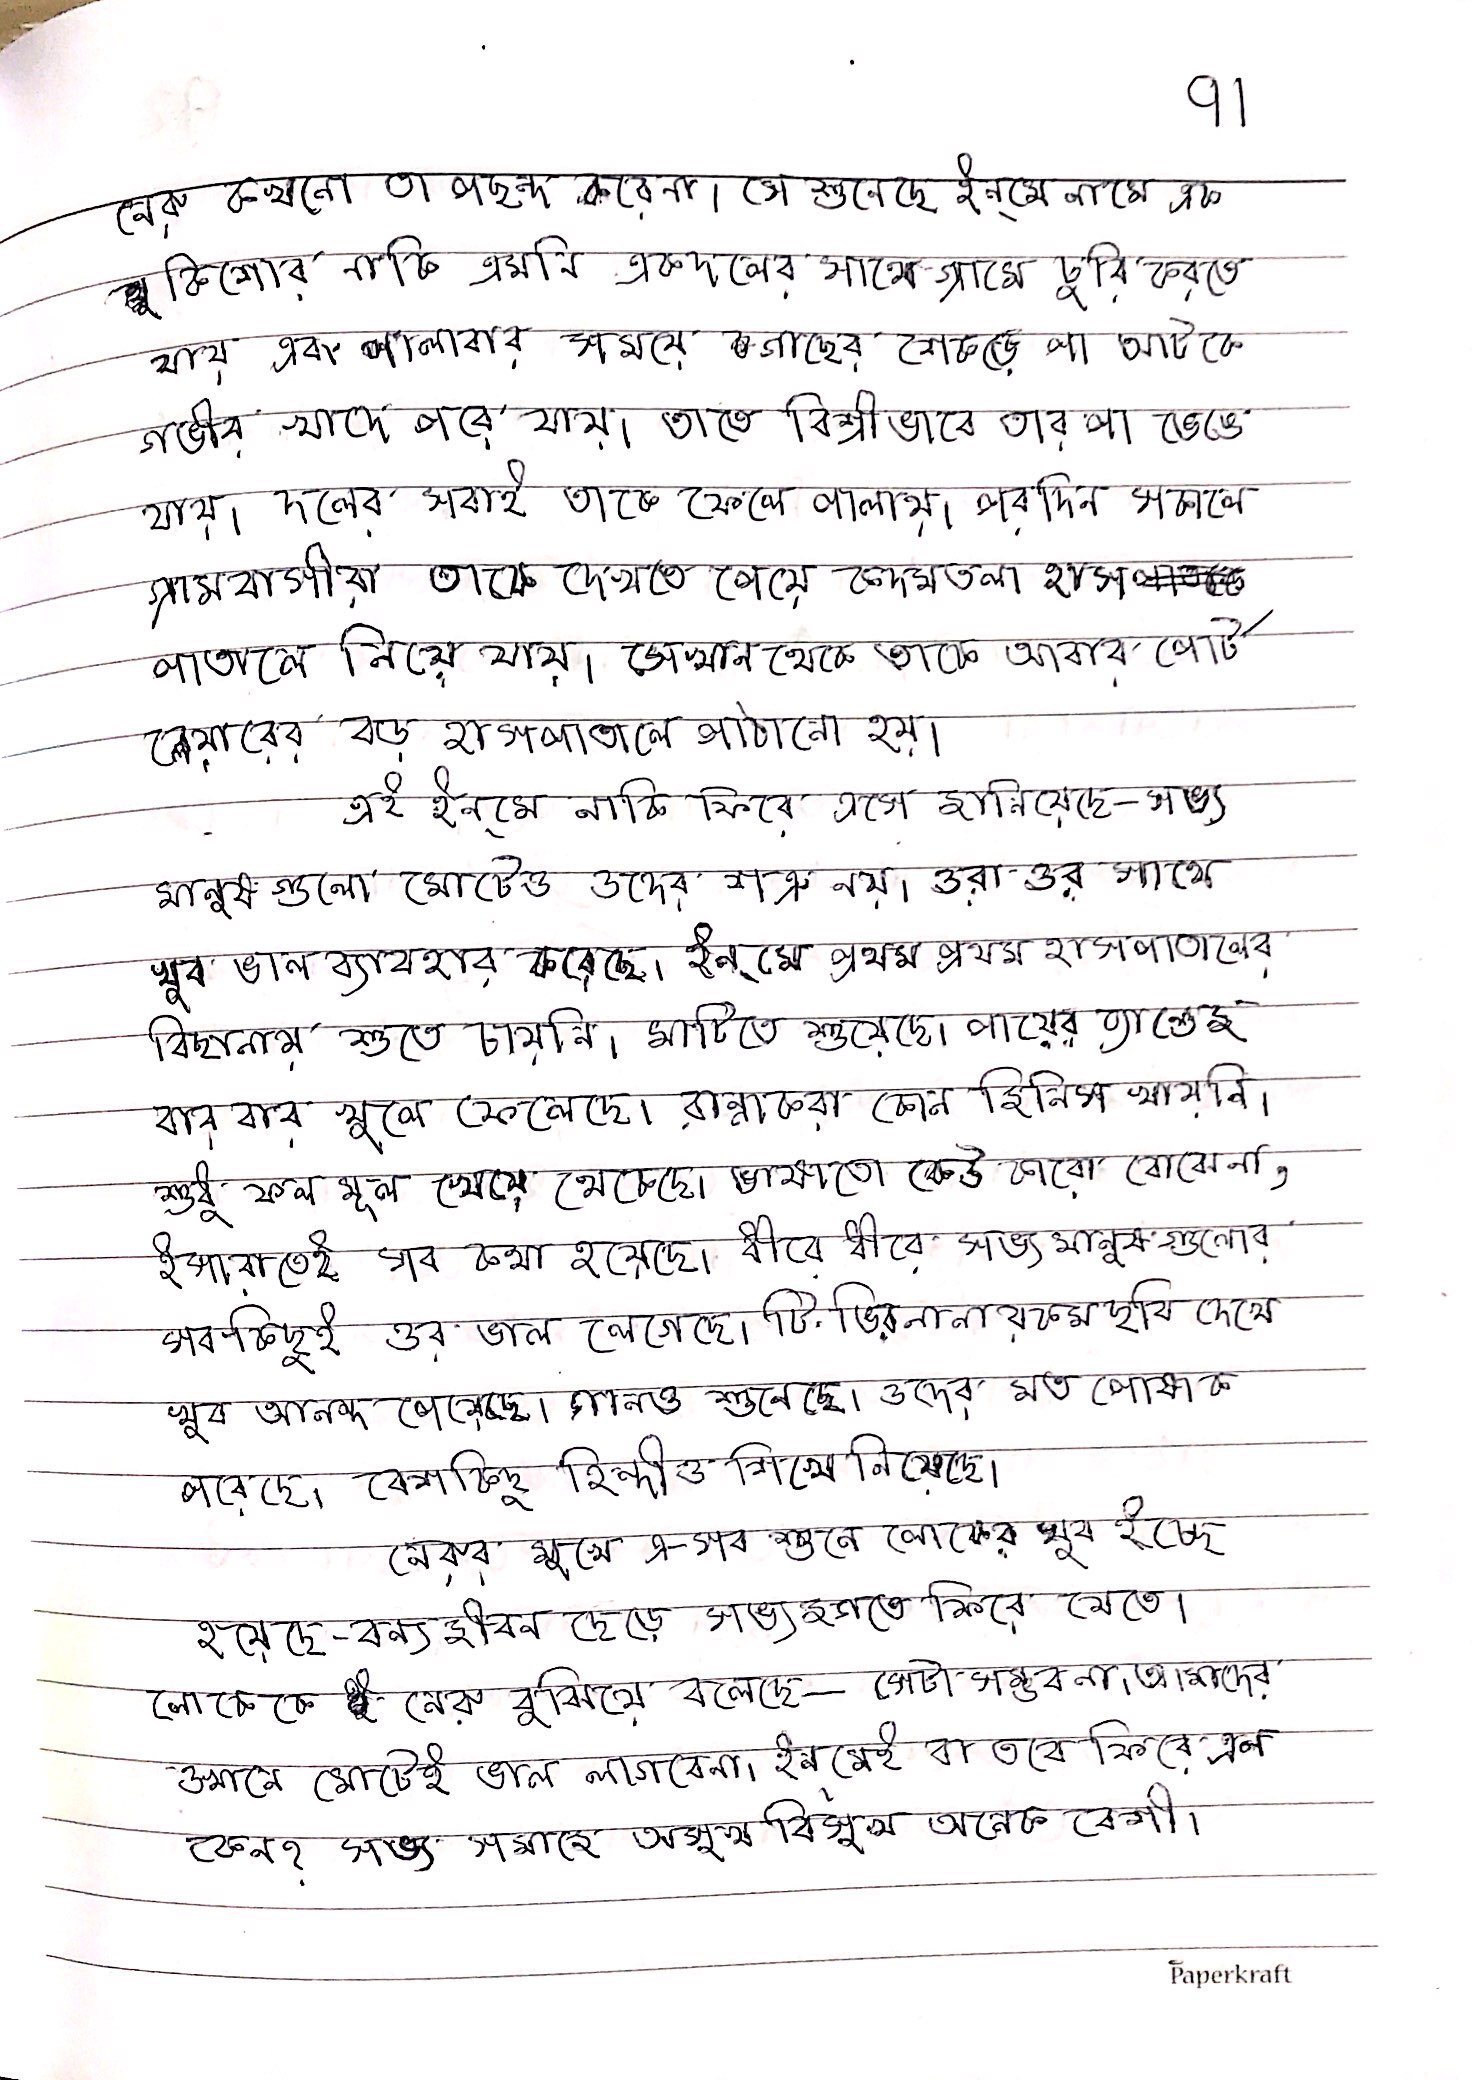 ৭১
নেরু কখনো তা পছন্দ করেনা। সে শুনেছে ইন্‌মে নামে এক
কিশোর নাকি এমনি একদলের সাথে গ্রামে চুরি করতে
যায় এবং পালাবার সময়ে গাছের শেকড়ে পা আটকে
গভীর খাদে পরে যায়। তাতে বিশ্রীভাবে তার পা ভেঙে
যায়। দলের সবাই তাকে ফেলে পালায়। পরদিন সকালে
গ্রামবাসীরা তাকে দেখতে পেয়ে কদমতলা হাস
পাতালে নিয়ে যায়। সেখান থেকে তাকে আবার পোর্ট
ব্লেয়ারের বড় হাসপাতালে পাঠানো হয়।
এই ইন্‌মে নাকি ফিরে এসে জানিয়েছে – সভ্য
মানুষগুলো মোটেও ওদের শত্রু নয়। ওরা ওর সাথে
খুব ভাল ব্যাবহার করেছে। ইন্‌মে প্রথম প্রথম হাসপাতালের
বিছানায় শুতে চায়নি। মাটিতে শুয়েছে। পায়ের ব্যাণ্ডেজ
বার বার খুলে ফেলেছে। রান্নাকরা কোন জিনিস খায়নি।
শুধু ফল মূল খেয়ে থেকেছে। ভাষাতো কেউ কারো বোঝেনা,
ইসারাতেই সব কথা হয়েছে। ধীরে ধীরে সভ্য মানুষগুলোর
সব কিছুই ওর ভাল লেগেছে। টি. ভির নানা রকম ছবি দেখে
খুব আনন্দ পেয়েছে। গানও শুনেছে। ওদের মত পোষাক
পরেছে। বেশকিছু হিন্দীও শিখে নিয়েছে।
নেরুর মুখে এ-সব শুনে লোকের খুব ইচ্ছে
হয়েছে – বন্য জীবন ছেড়ে সভ্যজগতে ফিরে যেতে।
লোকেকে নেরু বুঝিয়ে বলেছে — সেটা সম্ভব না। আমাদের
ওখানে মোটেই ভাল লাগবেনা। ইন্‌মেই বা তবে ফিরে এল
কেন? সভ্য সমাজে অসুখ বিসুখ অনেক বেশী।
Paperkraft